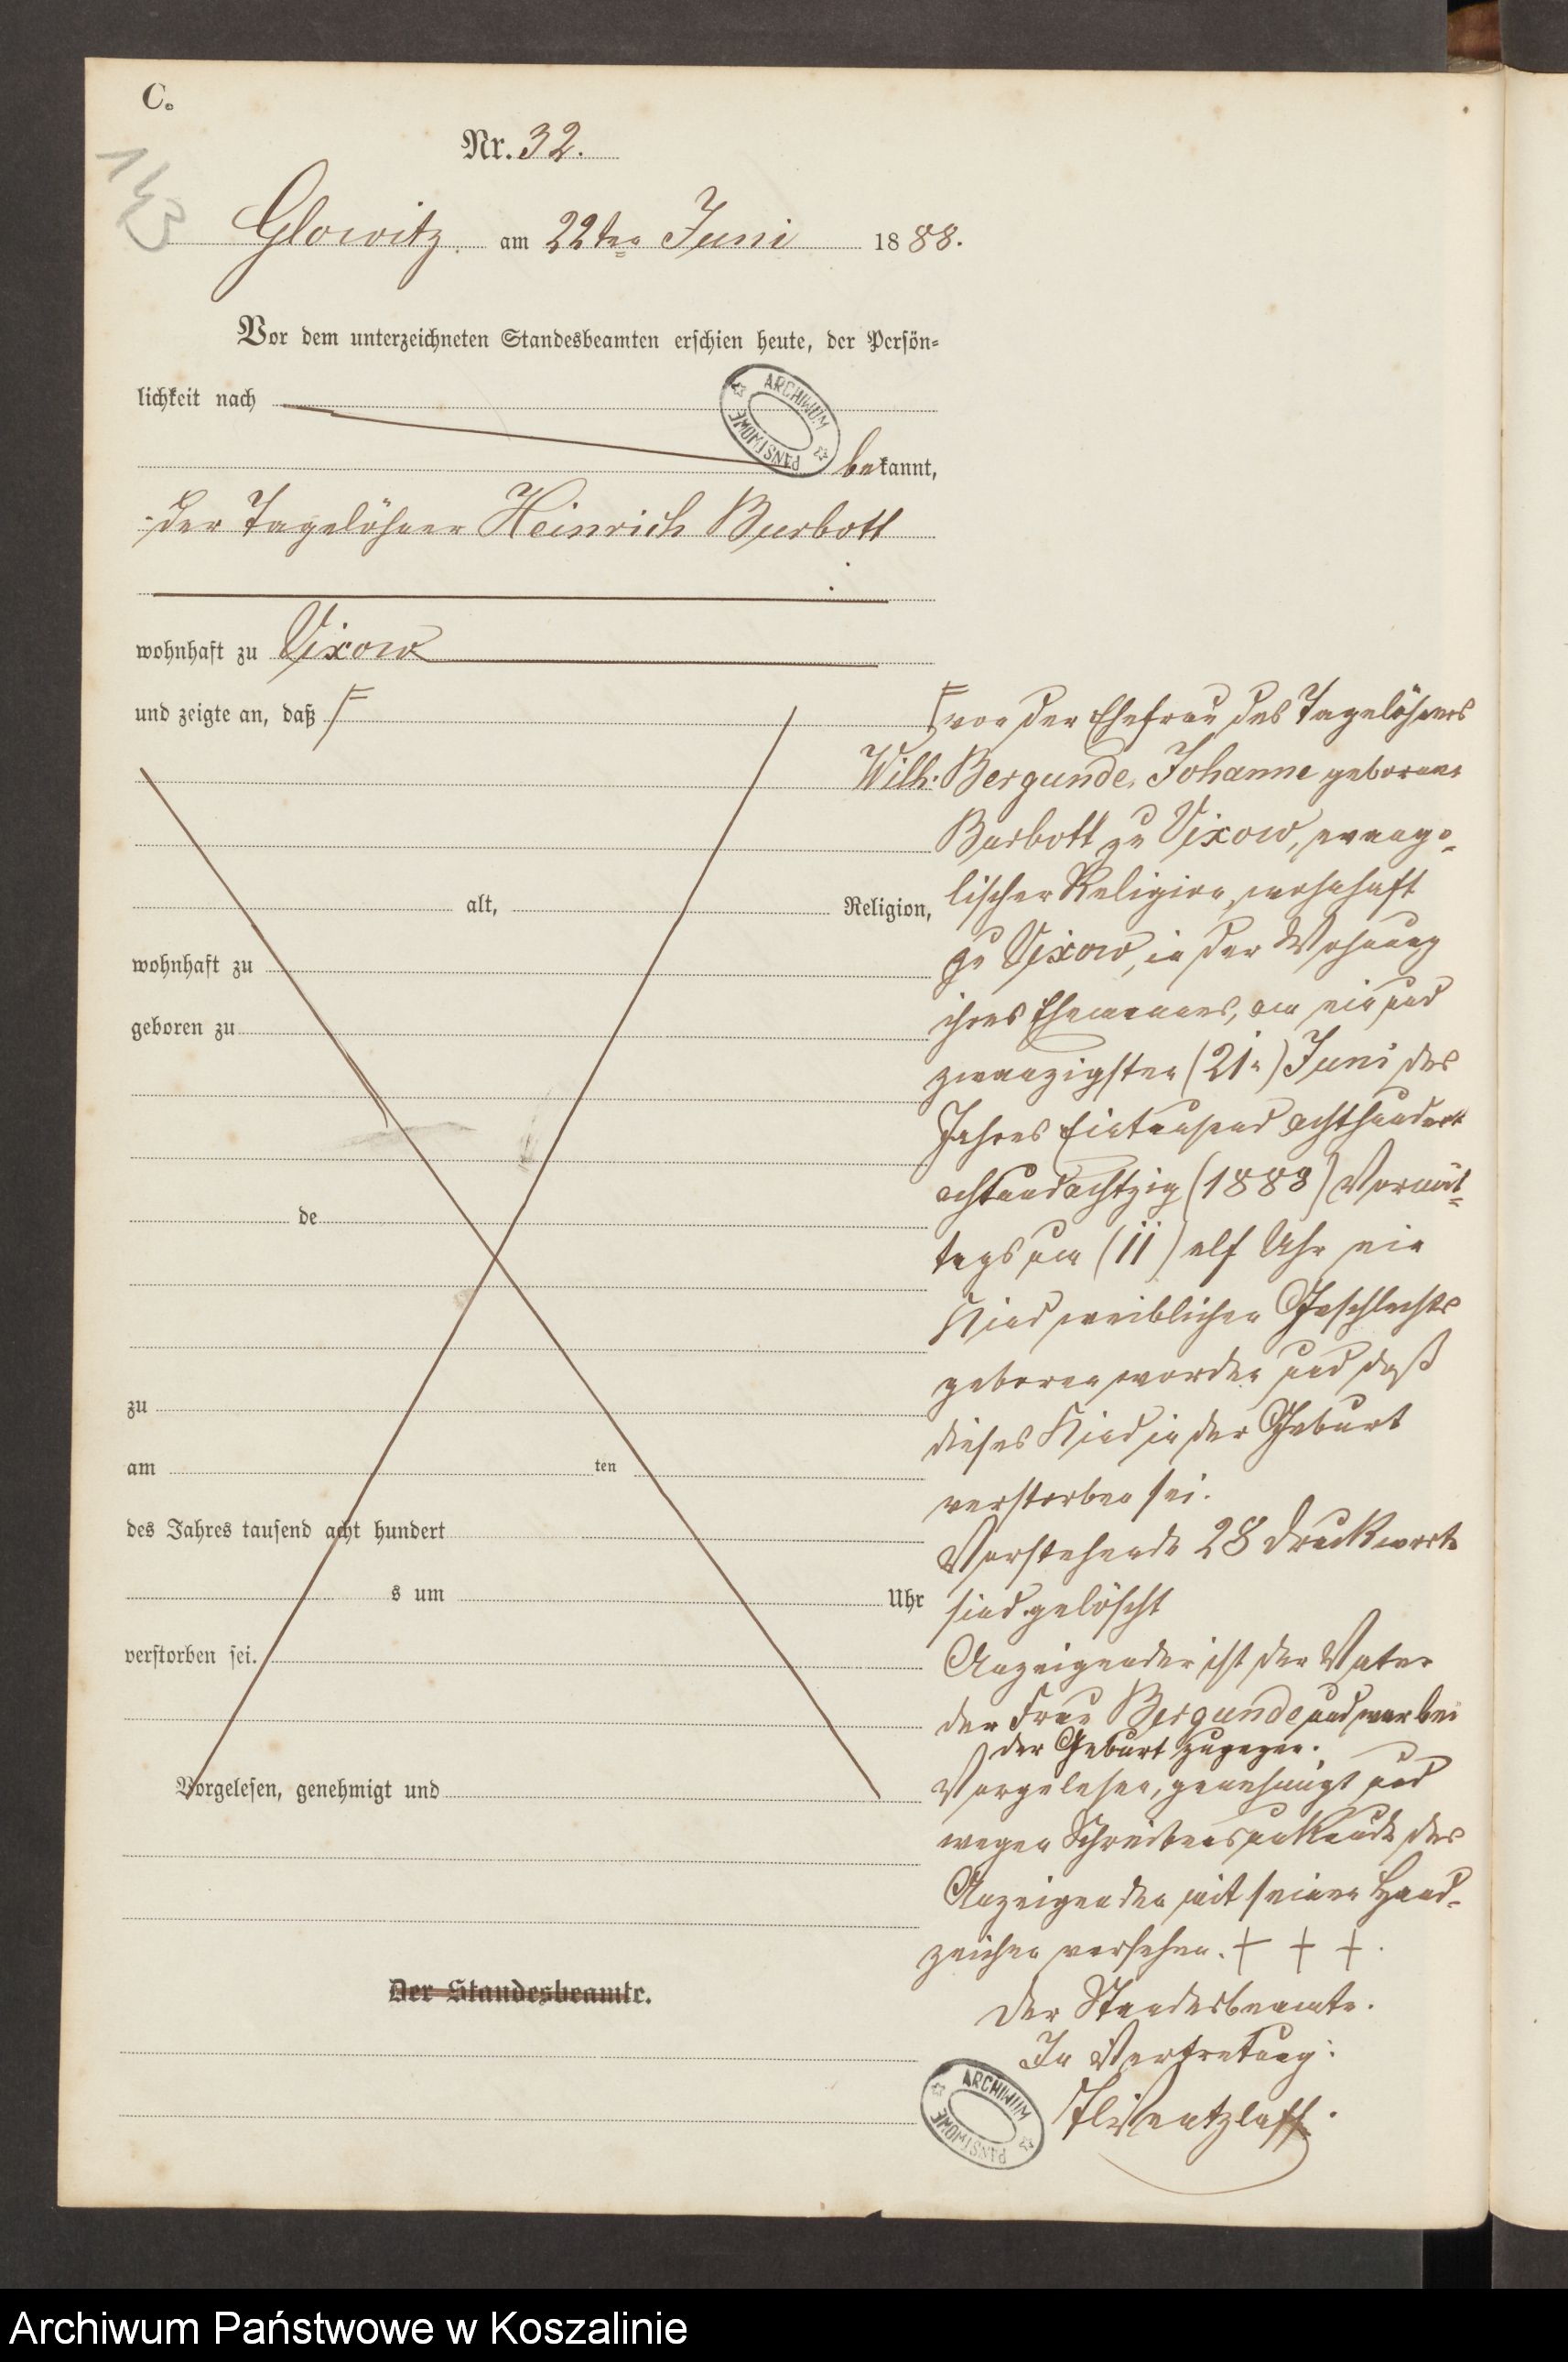 C.
143
Nr. 32.
Glowitz am 22ten Juni 1888.
Vor dem unterzeichneten Standesbeamten erschien heute, der Persön-
lichkeit nach
bekannt,
der Tagelöhner Heinrich Burbott
wohnhaft zu Vixow
und zeigte an, daß
alt, Religion,
wohnhaft zu
geboren zu
de
zu
am ten
des Jahres tausend acht hundert
s um Uhr
verstorben sei.
Vorgelesen, genehmigt und
Der Standesbeamte.
von der Ehefrau des Tagelöhners
Wilh. Bergunde, Johanne geborene
Burbott zu Vixow, evange-
lischer Religion, wohnhaft
zu Vixow, in der Wohnung
ihres Ehemannes, am ein und
zwanzigsten (21n) Juni des
Jahres Eintausend achthundert
achtundachtzig (1888) Vormit-
tags um (11) elf Uhr ein
Kind weiblichen Geschlechts
geboren worden und daß
dieses Kind in der Geburt
verstorben sei.
Vorstehende 28 Druckworte
sind gelöscht
Anzeigender ist der Vater
der Frau Bergunde und war bei
der Geburt zugegen.
Vorgelesen, genehmigt und
wegen Schreibensunkunde des
Anzeigenden mit seinen Hand-
zeichen versehen. + + +.
Der Standesbeamte.
In Vertretung:
ARCHIWUM PAŃSTWOWE
ARCHIWUM PAŃSTWOWE
Archiwum Państwowe w Koszalinie